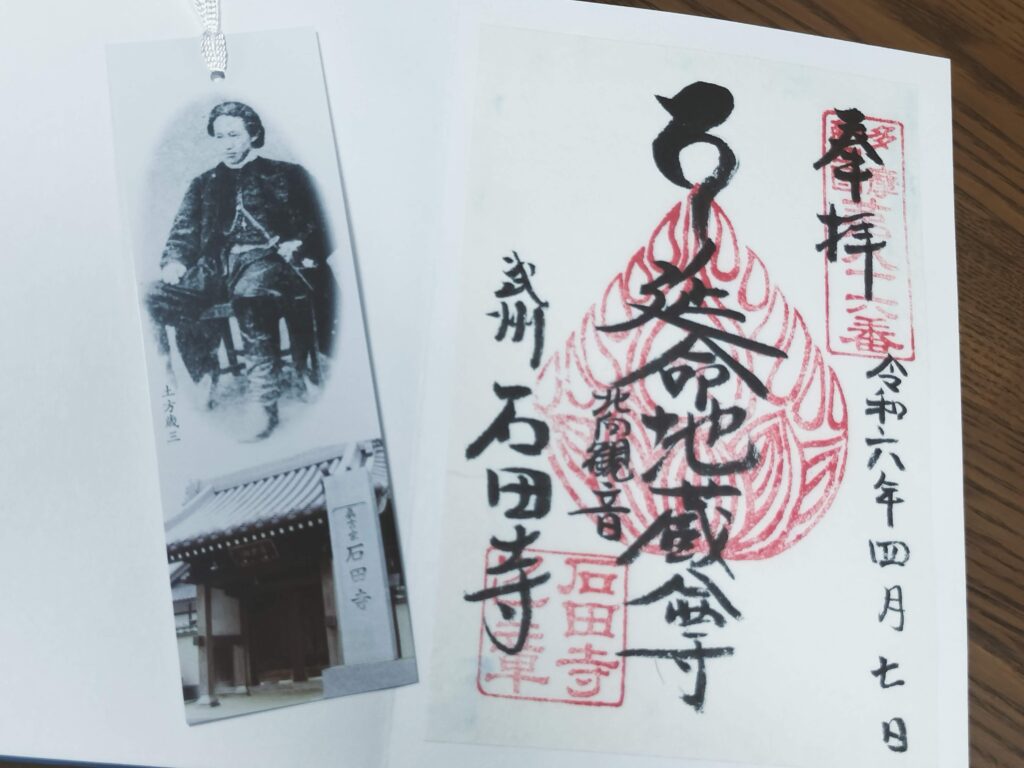 土方歳三
真言宗
石田寺
奉拝
六番
令和六年四月七日
延命地蔵尊
北向観音
武州
石田寺
石田寺